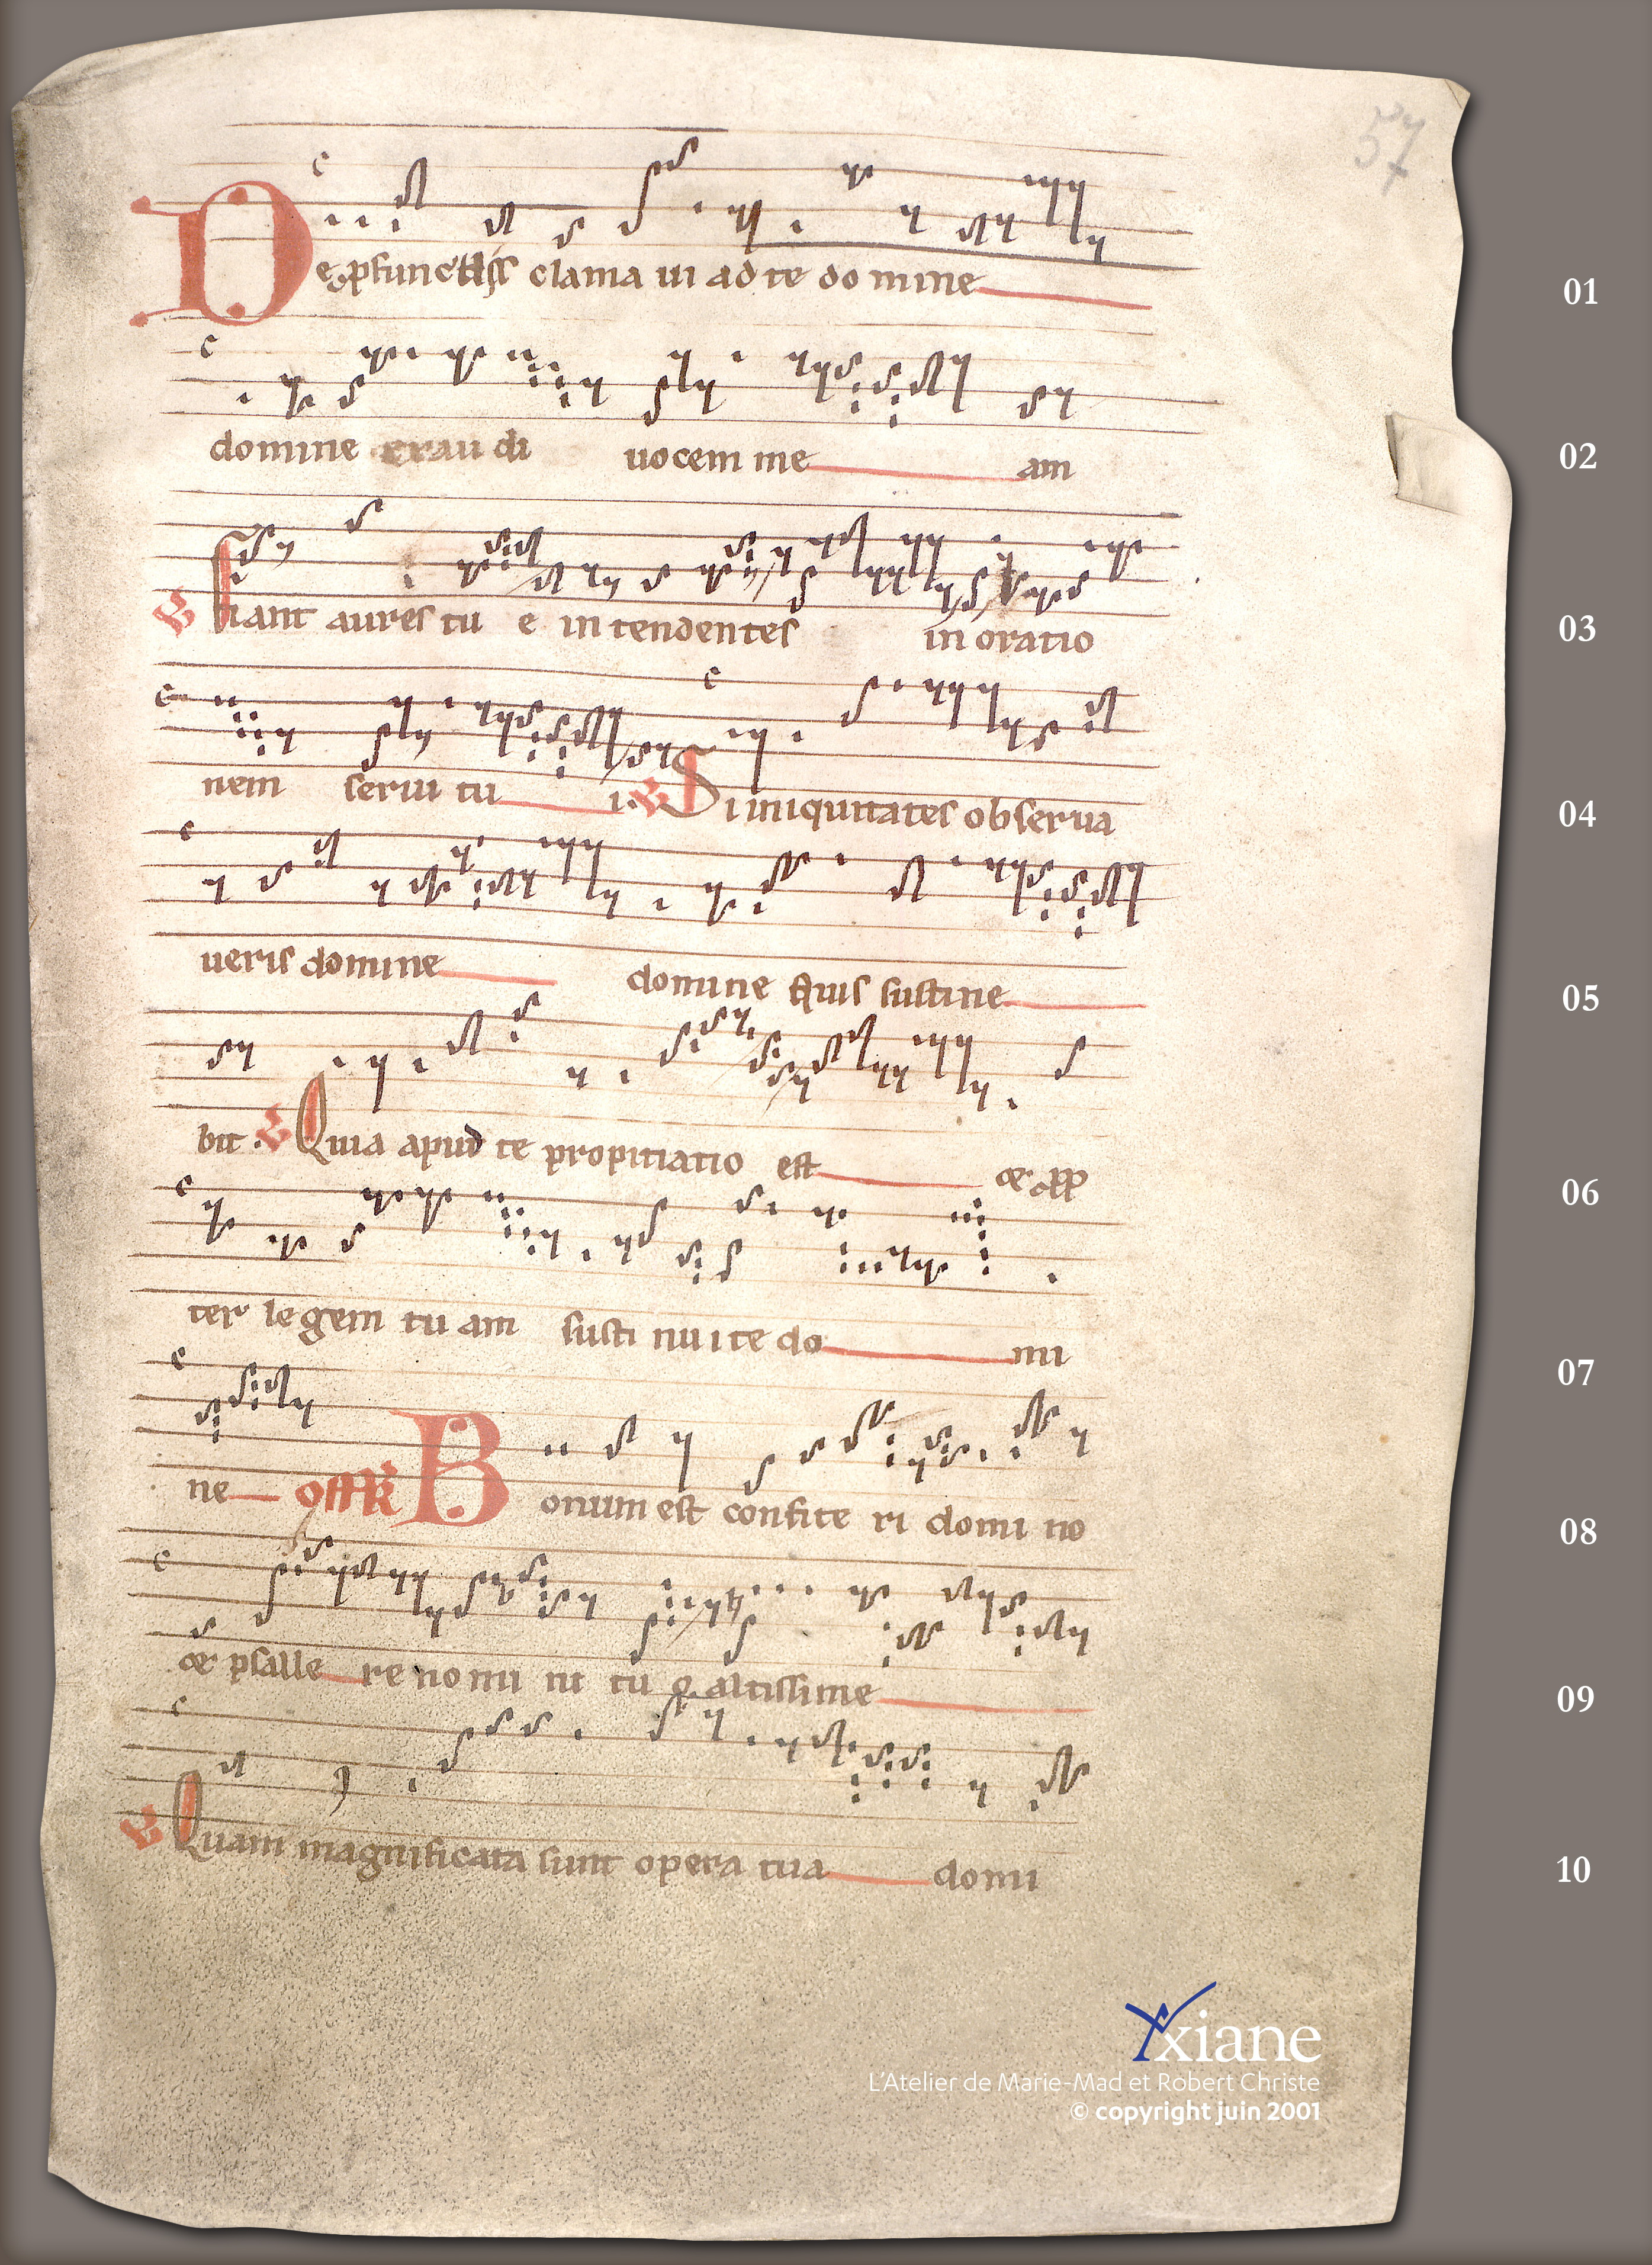 57
De pfunctiss clama ui ad te do mine 01
domine exau di uocem me am 02
℣ Fiant aures tu e in tendentes in oratio 03
nem serui tu i. ℣ Si iniquitates obserua 04
ueris domine domine quis sustine 05
bit. ℣ Quia apud te propitiatio est et pp 06
ter legem tu am susti nu i te do mi 07
ne Off B onum est confite ri domi no 08
et psalle re no mi ni tu o altissime 09
℣ Quam magnificata sunt opera tua domi 10
Axiane
L'Atelier de Marie-Mad et Robert Christe
© copyright juin 2001